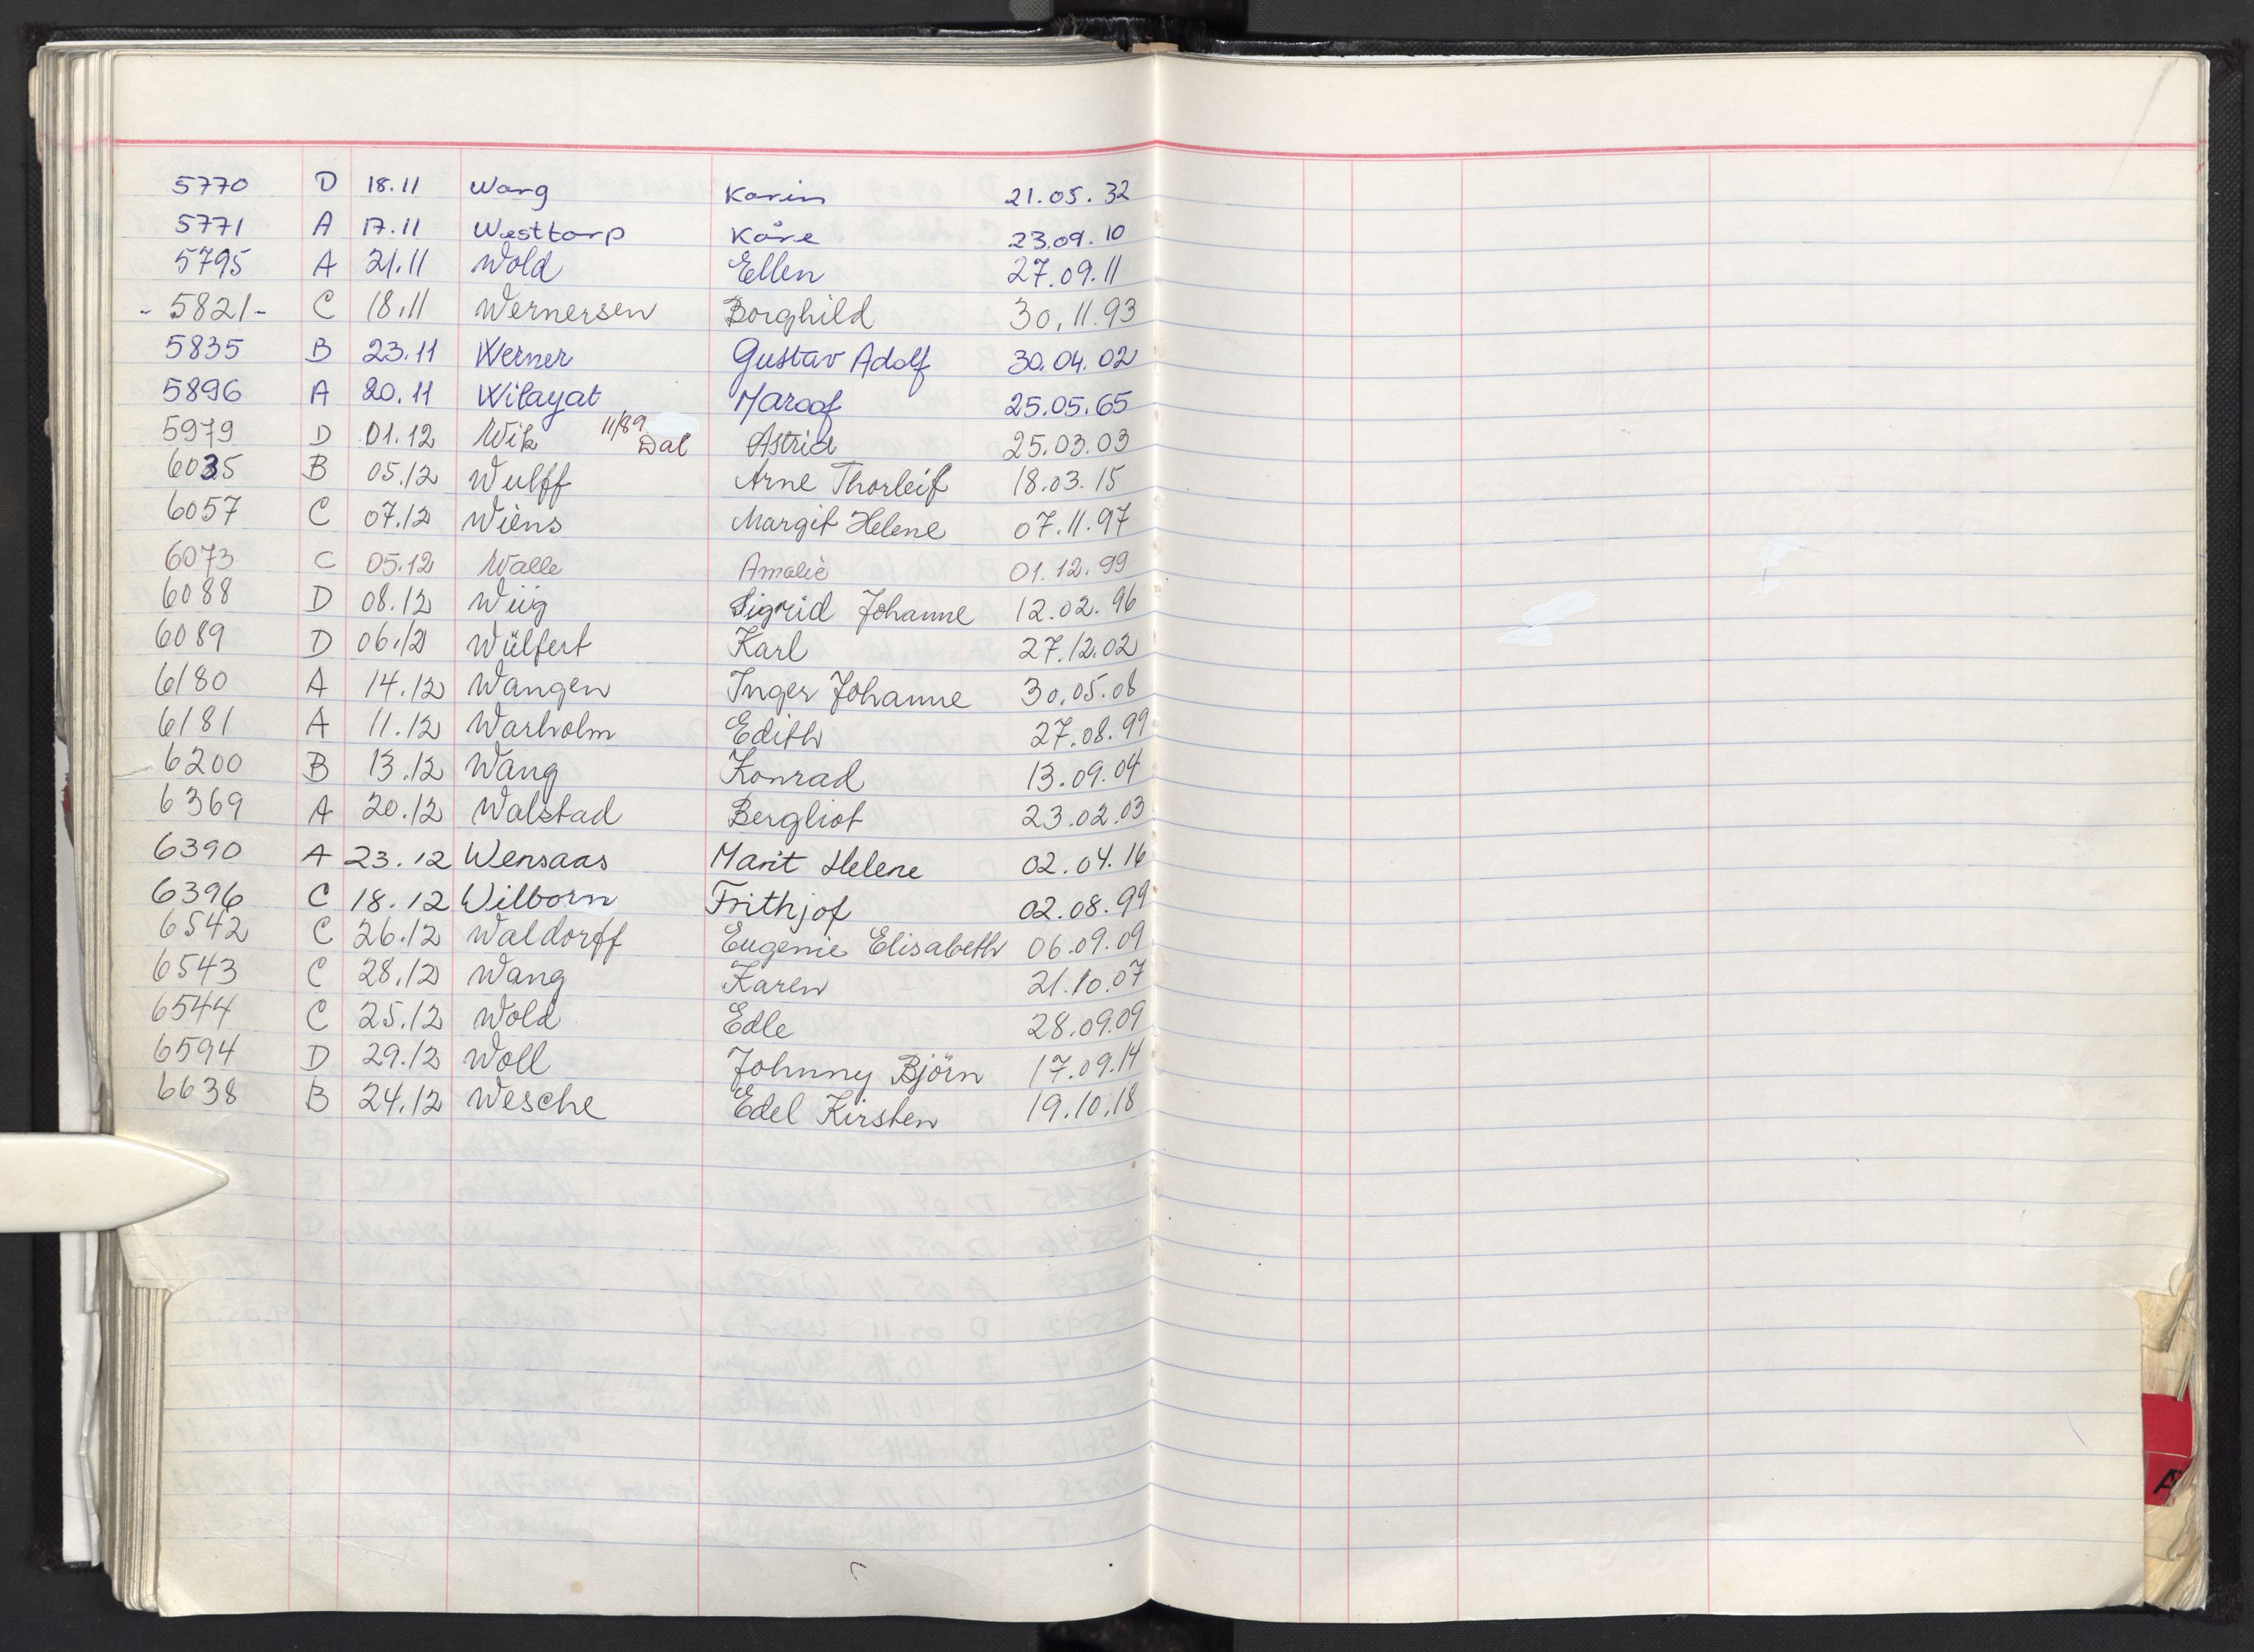 5770 D 18.11 Wang Karin 21.05.32
5771 A 17.11 Westtorp Kåre 23.09.10
5795 A 21.11 Wold Ellen 27.09.11
- 5821 - C 18.11 Wernersen Borghild 30.11.93
5835 B 23.11 Werner Gustav Adolf 30.04.02
5896 A 20.11 Wilayat Maroof 25.05.65
5979 D 01.12 Wik 11/89 Dal Astrid 25.03.03
6035 B 05.12 Wulff Arne Thorleif 18.03.15
6057 C 07.12 Wiens Margit Helene 07.11.97
6073 C 05.12 Walle Amalie 01.12.99
6088 D 08.12 Wiig Sigrid Johanne 12.02.96
6089 D 06.12 Wülfert Karl 27.12.02
6180 A 14.12 Wangen Inger Johanne 30.05.08
6181 A 11.12 Warholm Edith 27.08.99
6200 B 13.12 Wang Konrad 13.09.04
6369 A 20.12 Walstad Bergliot 23.02.03
6390 A 23.12 Wensaas Marit Helene 02.04.16
6396 C 18.12 Wilborn Frithjof 02.08.99
6542 C 26.12 Waldorff Eugenie Elisabeth 06.09.09
6543 C 28.12 Wang Karen 21.10.07
6544 C 25.12 Wold Edle 28.09.09
6594 D 29.12 Woll Johnny Björn 17.09.14
6638 B 24.12 Wesche Edel Kirsten 19.10.18
A